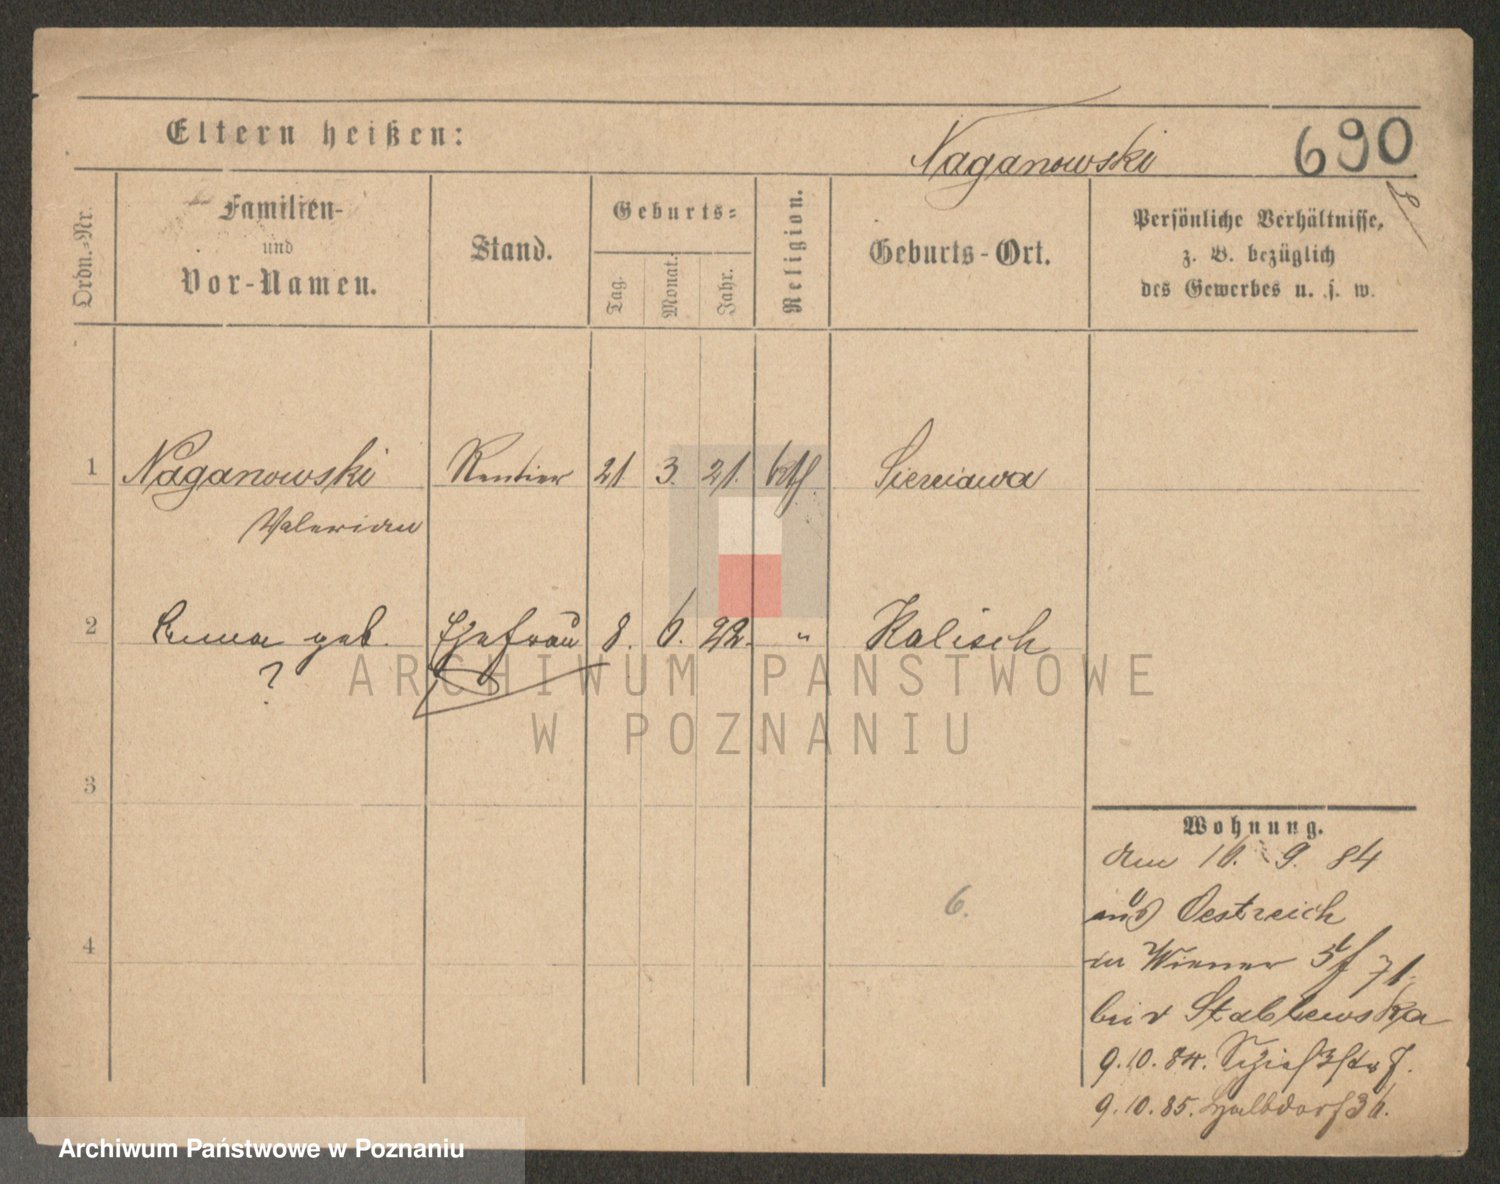 Eltern heißen:
Naganowski
690
Ordn.=Nr.
Familien-
und
Vor-Namen.
Stand.
Geburts=
Tag.
Monat.
Jahr.
Religion.
Geburts-Ort.
Persönliche Verhältnisse,
z. B. bezüglich
des Gewerbes u. s. w.
1 Naganowski Rentier 21 3. 21. kth. Sieniawa
Valerian
2 Emma geb. Ehefrau 8. 6. 22. " Kalisch
?
ARCHIWUM PAŃSTWOWE
W POZNANIU
3
Wohnung.
den 16. 9. 84
aus Oestreich
in Wiener 71.
6.
4
bei v Stablewska
9.10.84.
9.10.85. Halbdorf 36.
Archiwum Państwowe w Poznaniu